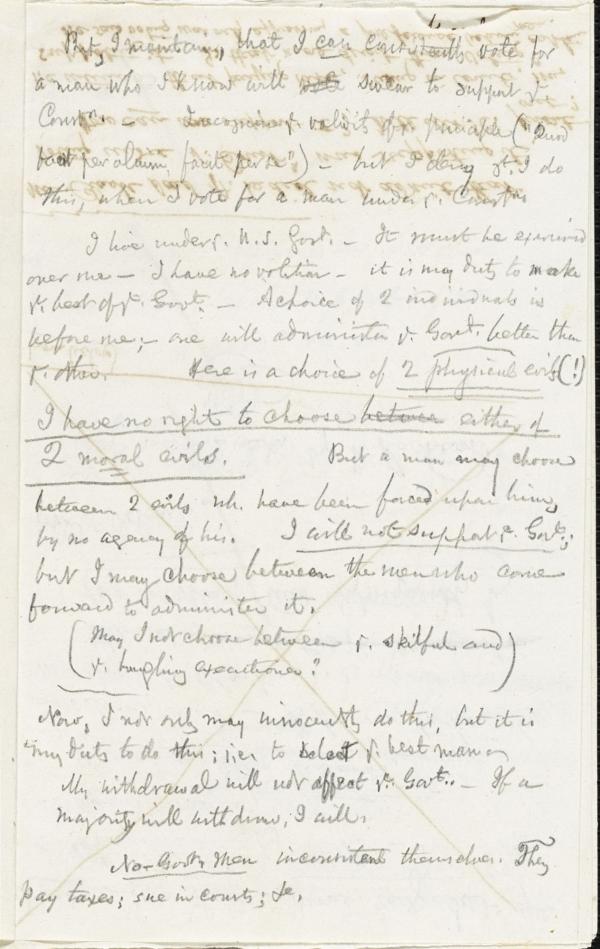 But, I maintain, that I can consistently vote for
a man who I know will swear to support yᵉ
Constn. — I recognise yᵉ validity of yᵉ principle ("Quod
facit per alium, facit per se") — but I deny yt. I do
this, when I vote for a man under yᵉ Constn
I live under yᵉ U.S. Govt. — It must be exercised
over me — I have no volition — it is my duty to make
yᵉ best of yᵉ Govt. — A choice of 2 individuals is
before me; — one will administer yᵉ Govt. better than
yᵉ other. Here is a choice of 2 physical evils (!)
I have no right to choose between either of
2 moral evils. But a man may choose
between 2 evils wh. have been forced upon him,
by no agency of his. I will not support yᵉ Govt.;
but I may choose between the men who come
forward to administer it.
(May I not choose between yᵉ skilful and
yᵉ bungling executioner?)
Now, I not only may innocently do this, but it is
my duty to do this; i.e. to select yᵉ best man
My withdrawal will not affect yᵉ Govt. — If a
majority will withdraw, I will.
No-Govt. Men inconsistent themselves. They
pay taxes; sue in courts; &c.